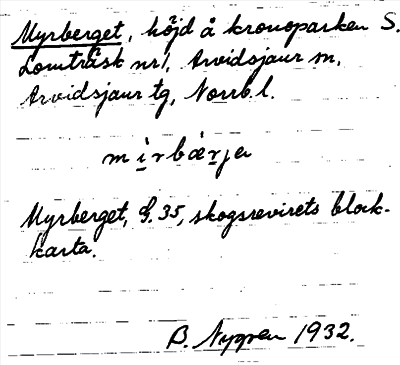 Myrberget, höjd å kronoparken S.
Lomträsk nr 1, Arvidsjaur sn,
Arvidsjaur tg, Norrb. l.
mirbærjɐ
Myrberget, G. 35, skogsrevirets block-
karta.
B. Nygren 1932.